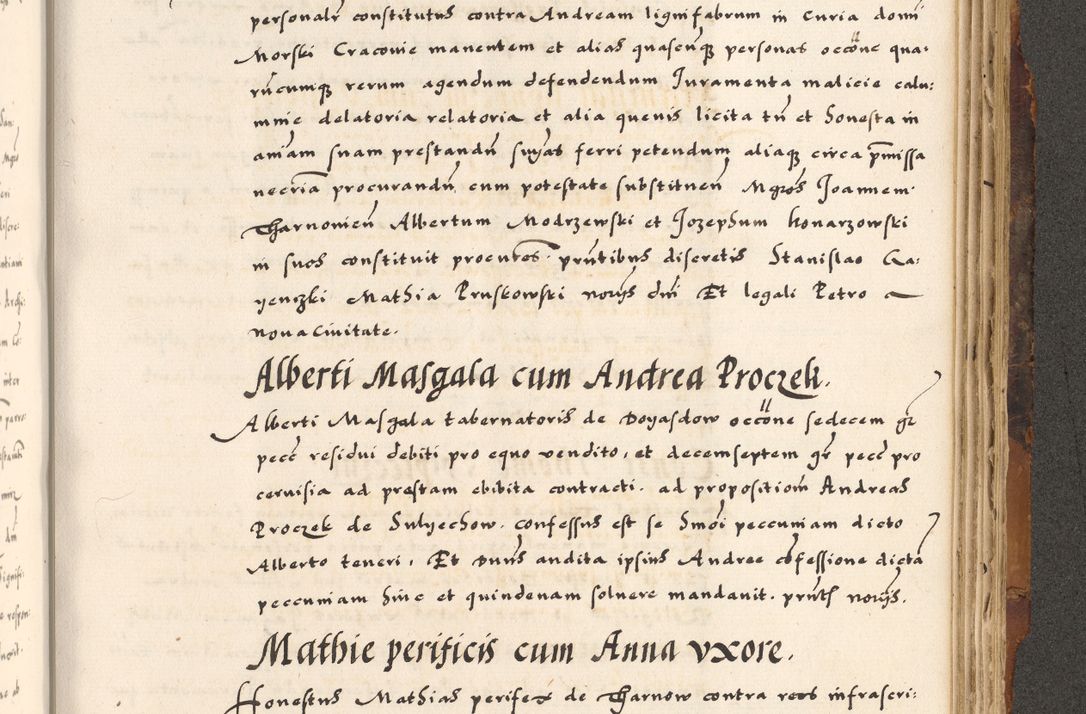 personalr constitutus contra Andream lignifabrum in Curia domi
Morski Cracovie manentem et alias quascuqz personas occone qua:
rucumqz rerum agendum defendendum Juramenta malicie calu:
mnie delatoria relatoria et alia quevis licita tn et honesta in
amam suam prestandn ferri petendum aliaqz circa pmissa
necria procurandn cum potestate substituen Mgros Joannem
Tharnovien Albertum Modrzewski et Jozephum konarzowski
in suos constituit procures. pntibus discretis Stanislao Ga:
yenczki Mathia Pruskowski norijs dni Et legali Petro a
nova civitate.
Alberti Masgala cum Andrea Proczek.
Alberti Masgala tabernatoris de Doyasdow occone sedecem gr
pecc residui debiti pro equo vendito, et decemseptem gr pecc pro
cervisia ad prestam ebibita contracti. ad propositiom Andreas
Proczek de Sulyechow. confessus est se hmoi peccuniam dicto
Alberto teneri, Et Dnus audita ipsius Andree cofessione dicta
peccuniam hinc et quindenam solvere mandavit. pnts norijs.
Mathie perificis cum Anna vxore.
Honestus Mathias perifex de Tharnow contra infrascri: